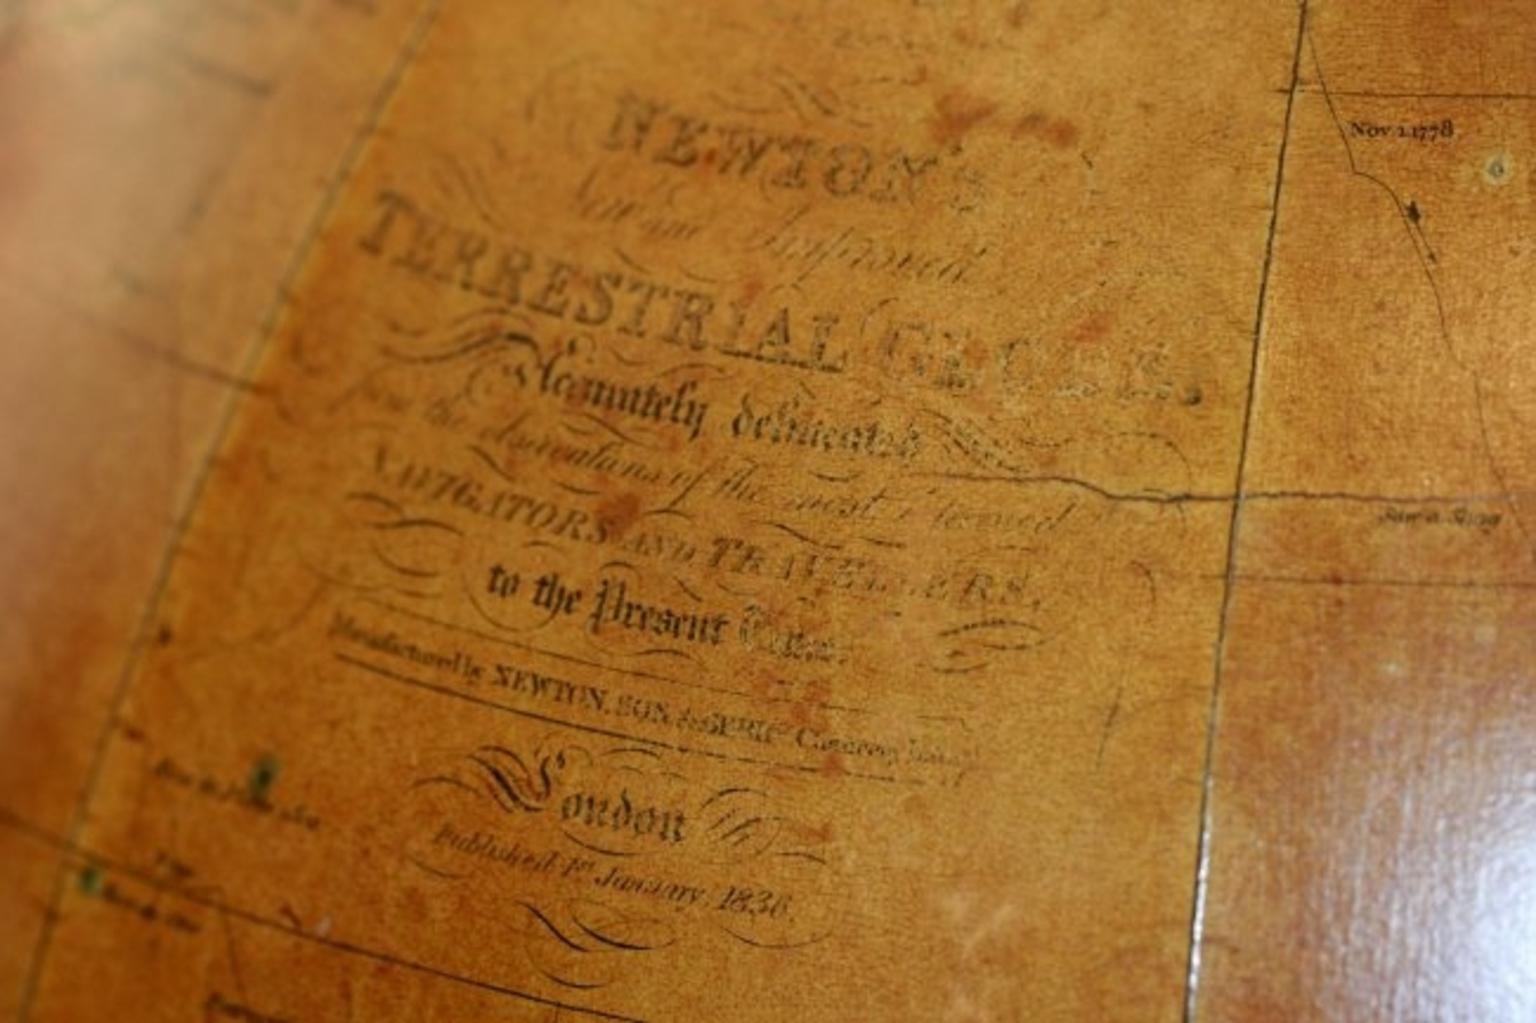 NEWTON'S
New and Improved
TERRESTRIAL GLOBE.
Accurately delineated
from the observations of the most esteemed
NAVIGATORS AND TRAVELLERS,
to the Present Time.
Manufactured by NEWTON, SON & BERRY Chancery Lane
London
Published 1st January, 1836.
Nov 1.1778